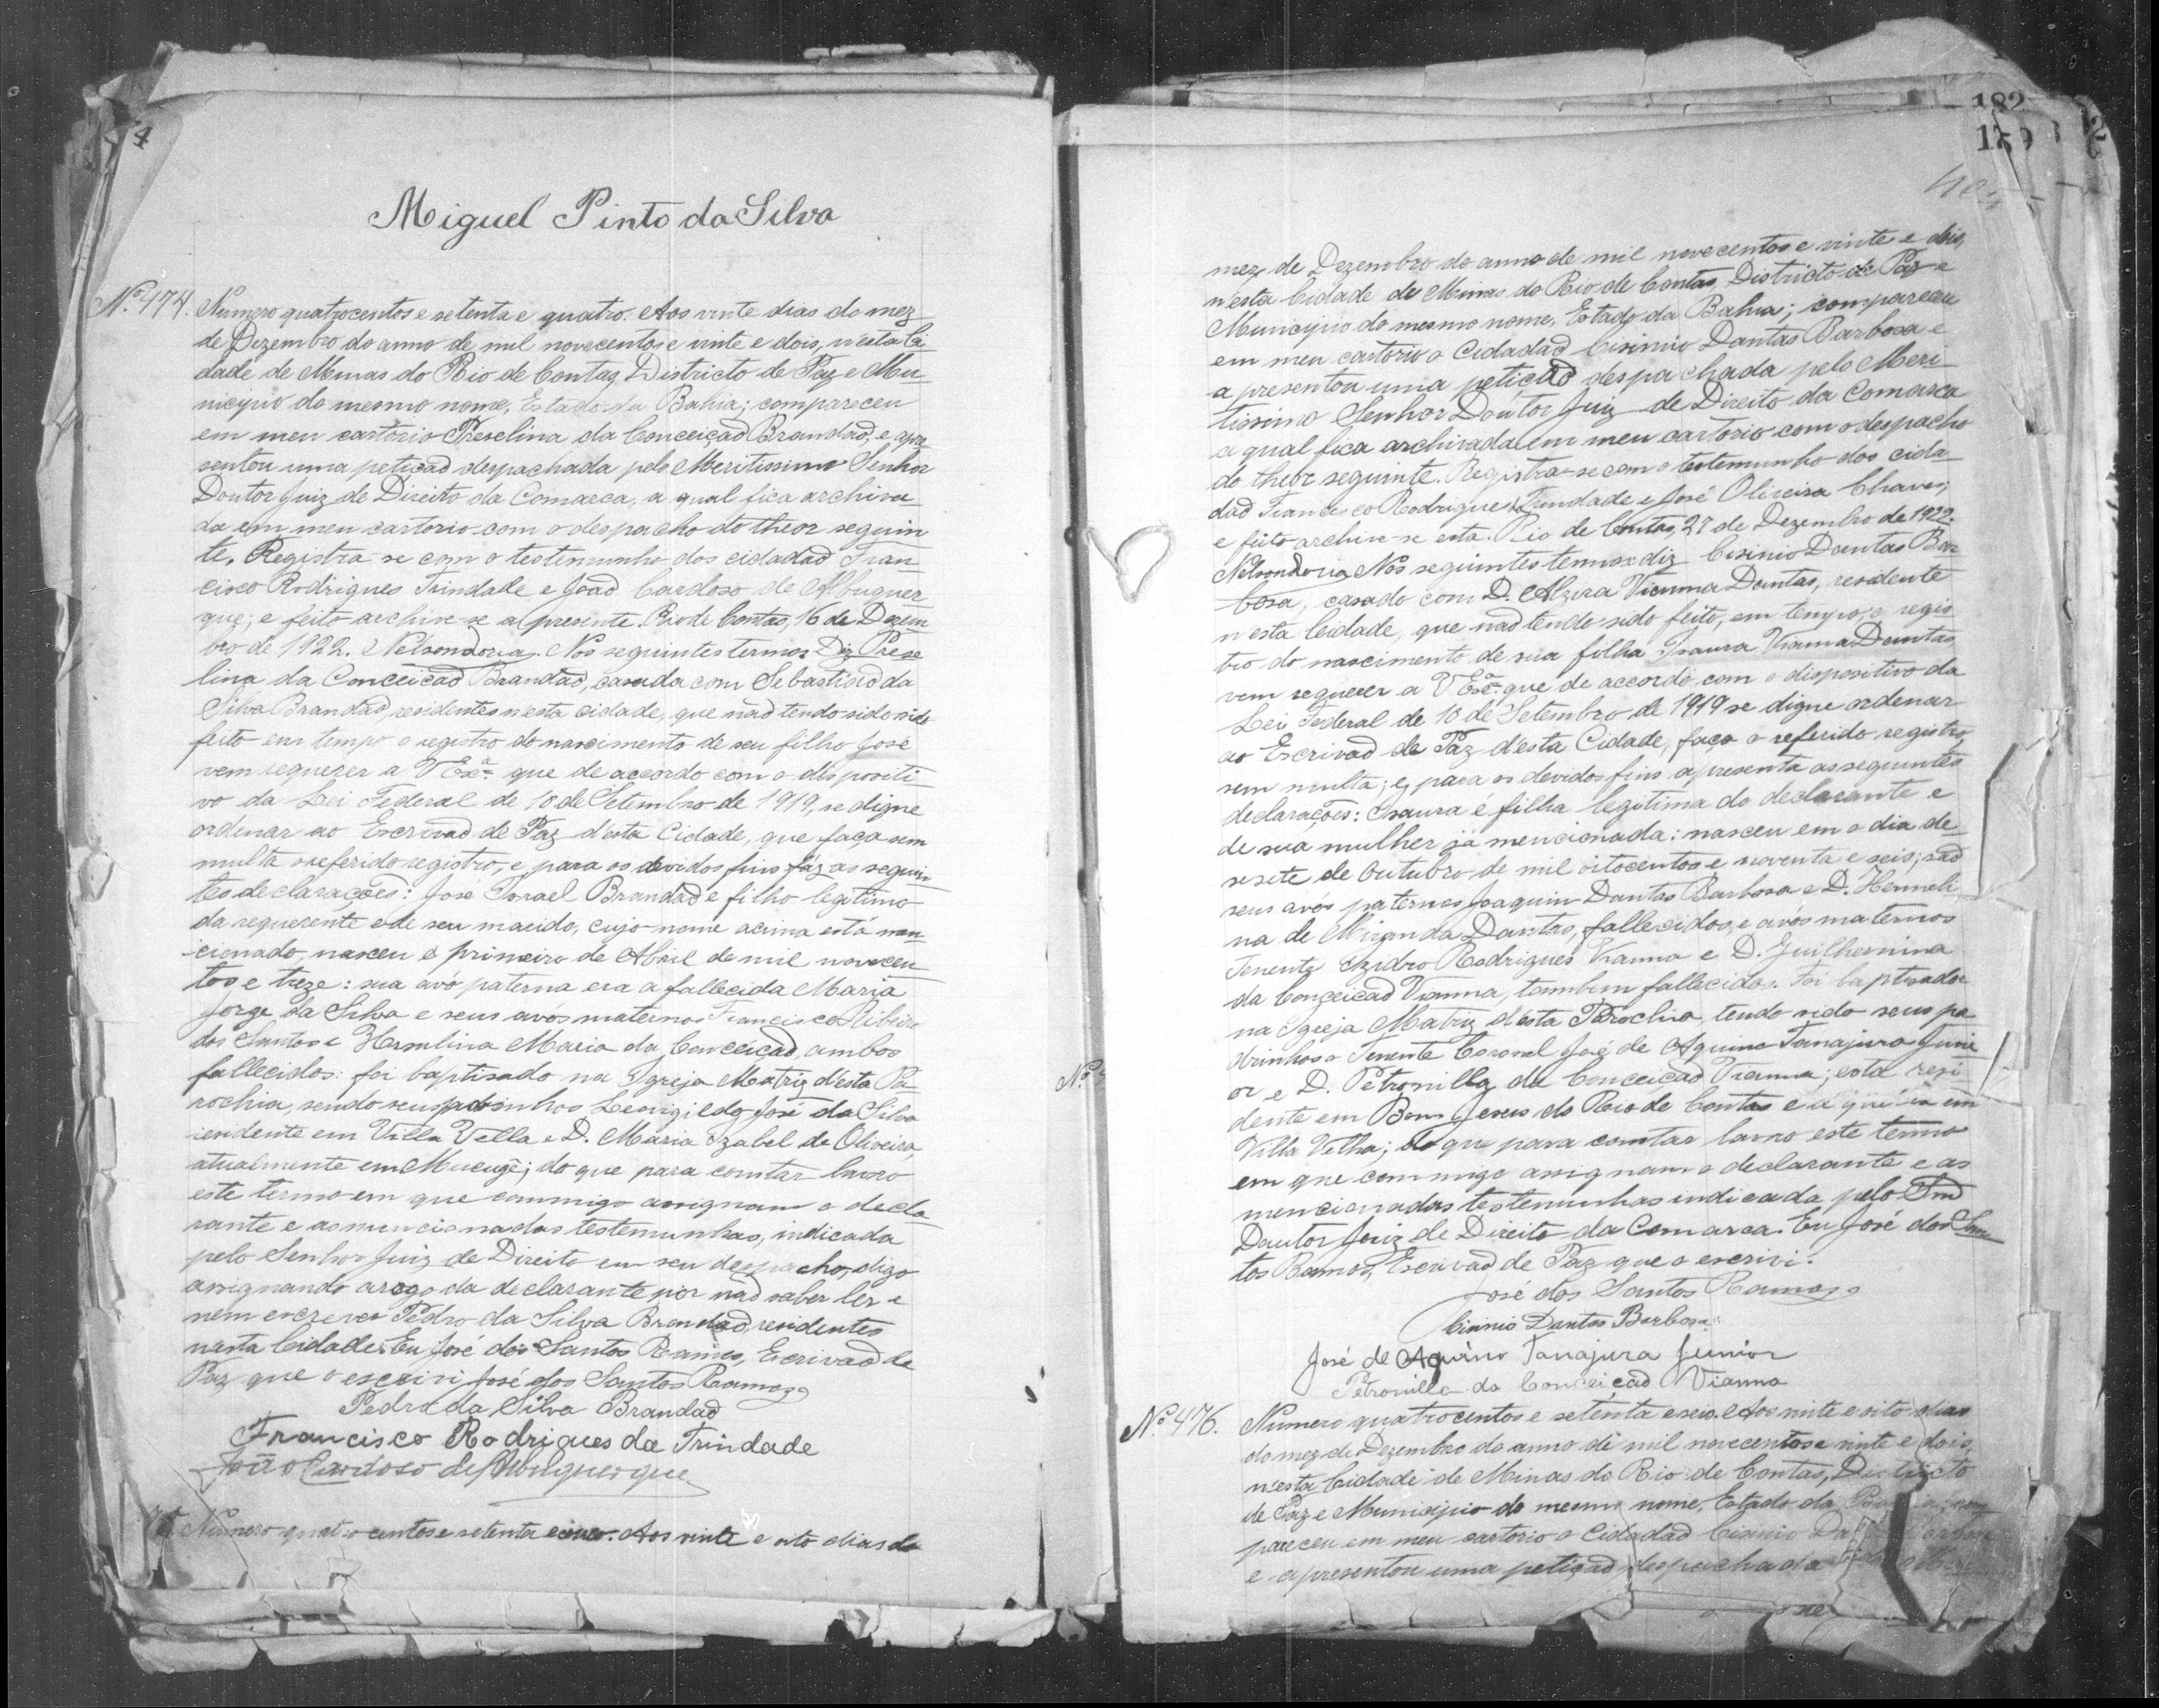 4
Miguel Pinto da Silva
Nº 474. Numero quatrocentos e setenta e quatro. Aos vinte dias do mez
de Dezembro do anno de mil novecentos e vinte e dois, n'esta Ci
dade de Minas do Rio de Contas, Districto de Paz e Mu
nicipio do mesmo nome, Estado da Bahia; compareceu
em meu cartorio Preselina da Conceição Brandão, e apre
sentou uma petição despachada pelo Meritissimo Senhor
Doutor Juiz de Direito da Comarca, a qual fica archiva
da em meu cartorio com o despacho do theor seguin
te. Registra-se com o testemunho dos cidadão Fran
cisco Rodrigues Trindade e João Cardoso de Albuquer
que; e feito archive-se a presente. Rio de Contas, 16 de Dezem
bro de 1922. Nelson Doria. Nos seguintes termos. Diz Prese
lina da Conceição Brandão, casada com Sebastião da
Silva Brandão, residentes n'esta cidade, que não tendo sido
feito em tempo o registro do nascimento de seu filho José
vem requerer a V Exª que de accordo com o dispositi
vo da Lei Federal de 10 de Setembro de 1919, se digne
ordenar ao Escrivão de Paz d'esta Cidade, que faça sem
multa o referido registro, e para os devidos fins faz as seguin
tes declarações: José Israel Brandão e filho legitimo
da requerente e de seu marido, cujo nome acima está men
cionado, nasceu é primeiro de Abril de mil novecen
tos e treze: sua avó paterna era a fallecida Maria
Jorge da Silva e seus avós maternos Francisco Ribeiro
dos Santos e Hersulina Maria da Conceição, ambos
fallecidos: foi baptisado na Igreja Matriz d'esta Pa
rochia, sendo seus padrinhos Leovigildo José da Silva
residente em Villa Vella e D. Maria Izabel de Oliveira,
atualmente em Mucugê; do que para constar lavro
este termo em que commigo assignam o decla
rante e as mencionadas testemunhas, indicada
pelo Senhor Juiz de Direito em seu despacho, digo
assignando arogo da declarante por não saber ler e
nem escrever Pedro da Silva Brandão, residentes
nesta Cidade. Eu José dos Santos Ramos, Escrivão de
Paz que o escrivi José dos Santos Ramos
Pedro da Silva Brandão
Francisco Rodrigues da Trindade
João Cardoso de Albuquerque
Numero quatrocentos e setenta e cinco. Aos vinte e oito dias do
182
mez de Dezembro do anno de mil novecentos e vinte e dois,
n'esta Cidade de Minas do Rio de Contas, Districto de Paz e
Municipio do mesmo nome, Estado da Bahia; compareceu
em meu cartorio o Cidadão Cisinio Dantas Barbosa e
apresentou uma petição despachada pelo Meri
tissimo Senhor Doutor Juiz de Direito da Comarca
a qual fica archivada em meu cartorio com o despacho
do theor seguinte. Registra-se com o testemunho dos cida
dão Francisco Rodrigues Trindade e José Oliveira Chaves;
e feito archive-se esta. Rio de Contas, 27 de Dezembro de 1922.
Nelson Doria. Nos seguintes termos: diz Cisinio Dantas Bar
bosa, casado com D. Alzira Vianna Dantas, residente
n'esta Cidade, que não tendo sido feito, em tempo, o regis
tro do nascimento de sua filha Isaura Vianna Dantas,
vem requerer a V Exª que de accordo com o dispositivo da
Lei Federal de 10 de Setembro de 1919 se digne ordenar
ao Escrivão de Paz d'esta Cidade, faça o referido registro,
sem multa; e, para os devidos fins apresenta as seguintes
declarações: Isaura é filha legitima do declarante e
de sua mulher já mencionada: nasceu em o dia de
sesete de Outubro de mil oitocentos e noventa e seis; são
seus avós paternos Joaquim Dantas Barbosa e D. Hermeli
na de Miranda Dantas, fallecidos, e avós maternos
Tenente Izidro Rodrigues Vianna e D. Guilhermina
da Conceição Vianna, tambem fallecidos. Foi baptisada
na Igreja Matriz d'esta Parochia, tendo sido seus pa
drinhos o Tenente Coronel José de Aquino Tanajura Juni
or e D. Petronilla da Conceição Vianna; esta resi
dente em Bom Jesus do Rio de Contas e aquelle em
Villa Velha; do que para constar lavro este termo
em que commigo assignam o declarante e as
mencionadas testemunhas indicada pelo Snr
Doutor Juiz de Direito da Comarca. Eu José dos San
tos Ramos, Escrivão de Paz que o escrivi.
José dos Santos Ramos
Cisinio Dantas Barbosa
José de Aquino Tanajura Junior
Petronilla da Conceição Vianna
Nº 476. Numero quatrocentos e setenta e seis. Aos vinte e oito dias
do mez de Dezembro do anno de mil novecentos e vinte e dois,
n'esta Cidade de Minas do Rio de Contas, Districto
de Paz e Municipio do mesmo nome, Estado da
pareceu em meu cartorio o Cidadão Cisinio
e apresentou uma petição despachada